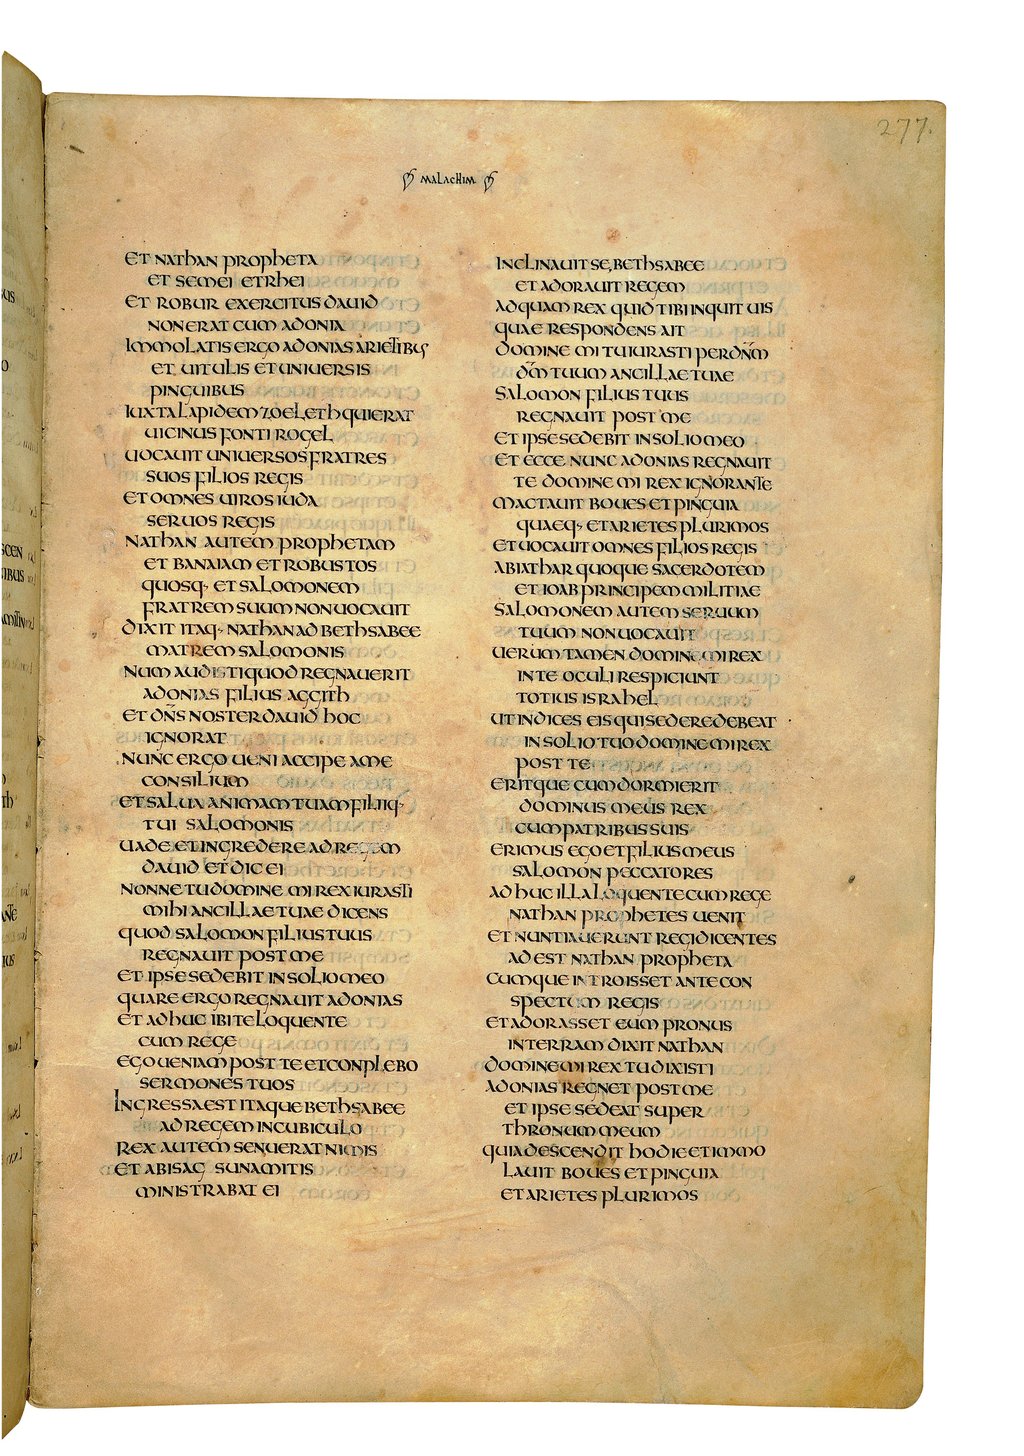 277.
MALACHIM
ET NATHAN PROPHETA
ET SEMEI ET RHEI
ET ROBUR EXERCITUS DAUID
NON ERAT CUM ADONIA
IMMOLATIS ERGO ADONIAS ARIETIBUS
ET UITULIS ET UNIUERSIS
PINGUIBUS
IUXTA LAPIDEM ZOELETH QUI ERAT
UICINUS FONTI ROGEL
UOCAUIT UNIUERSOS FRATRES
SUOS FILIOS REGIS
ET OMNES UIROS IUDA
SERUOS REGIS
NATHAN AUTEM PROPHETAM
ET BANAIAM ET ROBUSTOS
QUOSQ· ET SALOMONEM
FRATREM SUUM NON UOCAUIT
DIXIT ITAQ· NATHAN AD BETHSABEE
MATREM SALOMONIS
NUM AUDISTI QUOD REGNAUERIT
ADONIAS FILIUS AGGITH
ET DN̄S NOSTER DAUID HOC
IGNORAT
NUNC ERGO UENI ACCIPE A ME
CONSILIUM
ET SALUA ANIMAM TUAM FILIIQ·
TUI SALOMONIS
UADE ET INGREDERE AD REGEM
DAUID ET DIC EI
NONNE TU DOMINE MI REX IURASTI
MIHI ANCILLAE TUAE DICENS
QUOD SALOMON FILIUS TUUS
REGNAUIT POST ME
ET IPSE SEDEBIT IN SOLIO MEO
QUARE ERGO REGNAUIT ADONIAS
ET ADHUC IBI TE LOQUENTE
CUM REGE
EGO UENIAM POST TE ET CONPLEBO
SERMONES TUOS
INGRESSA EST ITAQUE BETHSABEE
AD REGEM IN CUBICULO
REX AUTEM SENUERAT NIMIS
ET ABISAG SUNAMITIS
MINISTRABAT EI
INCLINAUIT SE BETHSABEE
ET ADORAUIT REGEM
AD QUAM REX QUID TIBI INQUIT UIS
QUAE RESPONDENS AIT
DOMINE MI TU IURASTI PER DN̄M
DM̄ TUUM ANCILLAE TUAE
SALOMON FILIUS TUUS
REGNAUIT POST ME
ET IPSE SEDEBIT IN SOLIO MEO
ET ECCE NUNC ADONIAS REGNAUIT
TE DOMINE MI REX IGNORANTE
MACTAUIT BOUES ET PINGUIA
QUAEQ· ET ARIETES PLURIMOS
ET UOCAUIT OMNES FILIOS REGIS
ABIATHAR QUOQUE SACERDOTEM
ET IOAB PRINCIPEM MILITIAE
SALOMONEM AUTEM SERUUM
TUUM NON UOCAUIT
UERUM TAMEN DOMINE MI REX
IN TE OCULI RESPICIUNT
TOTIUS ISRAHEL
UT INDICES EIS QUI SEDERE DEBEAT
IN SOLIO TUO DOMINE MI REX
POST TE
ERITQUE CUM DORMIERIT
DOMINUS MEUS REX
CUM PATRIBUS SUIS
ERIMUS EGO ET FILIUS MEUS
SALOMON PECCATORES
ADHUC ILLA LOQUENTE CUM REGE
NATHAN PROPHETES UENIT
ET NUNTIAUERUNT REGI DICENTES
ADEST NATHAN PROPHETA
CUMQUE INTROISSET ANTE CON
SPECTUM REGIS
ET ADORASSET EUM PRONUS
IN TERRAM DIXIT NATHAN
DOMINE MI REX TU DIXISTI
ADONIAS REGNET POST ME
ET IPSE SEDEAT SUPER
THRONUM MEUM
QUIA DESCENDIT HODIE ET IMMO
LAUIT BOUES ET PINGUIA
ET ARIETES PLURIMOS